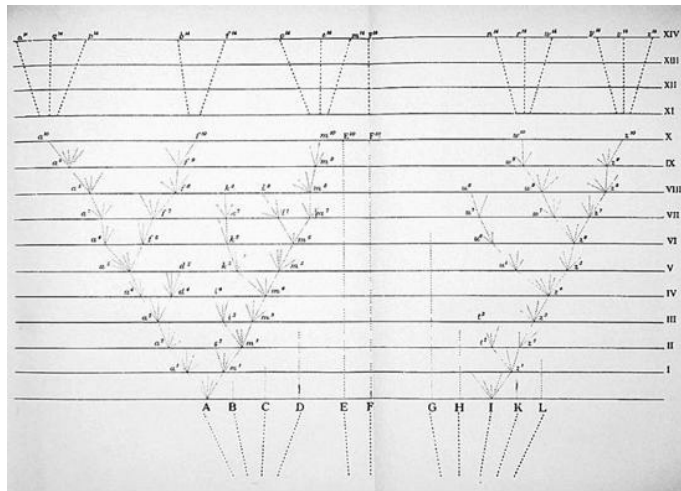 a¹⁴ q¹⁴ p¹⁴ b¹⁴ f¹⁴ o¹⁴ e¹⁴ m¹⁴ F¹⁴ n¹⁴ r¹⁴ w¹⁴ y¹⁴ v¹⁴ z¹⁴ XIV
XIII
XII
XI
a¹⁰ f¹⁰ m¹⁰ E¹⁰ F¹⁰ w¹⁰ z¹⁰ X
a⁹ f⁹ m⁹ w⁹ z⁹ IX
a⁸ f⁸ k⁸ l⁸ m⁸ u⁸ w⁸ z⁸ VIII
a⁷ f⁷ l⁷ m⁷ u⁷ w⁷ z⁷ VII
a⁶ f⁶ k⁶ m⁶ u⁶ z⁶ VI
a⁵ d⁵ k⁵ m⁵ u⁵ z⁵ V
a⁴ d⁴ m⁴ z⁴ IV
a³ i³ m³ t³ z³ III
a² s² m² t² z² II
a¹ m¹ z¹ I
A B C D E F G H I K L